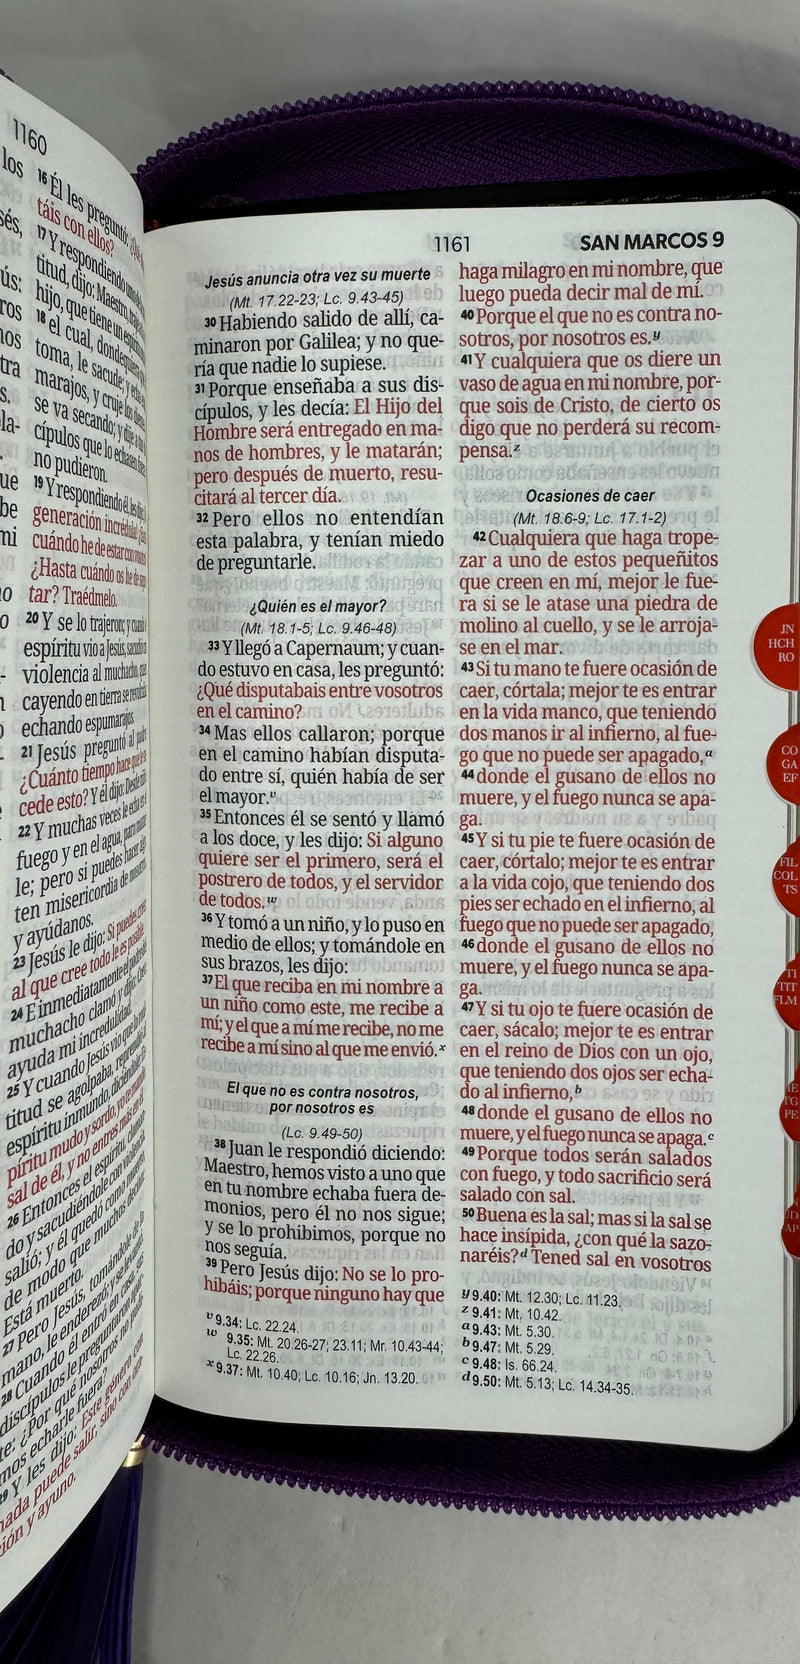 1160
los
sés,
ús:
ros
nos
tra
s.
la-
ue
be
mi
16 Él les preguntó: ¿Qué
táis con ellos?
17 Y respondiendo
titud, dijo: Maestro,
hijo, que tiene un
18 el cual,
toma, le sacude; y
marajos, y cruje los
se va secando; y dije a
cípulos que lo echasen
no pudieron.
19 Y respondiendo él, les
generación incrédula!
cuándo he de estar con
¿Hasta cuándo os he de
tar? Traédmelo.
20 Y se lo trajeron; y cuando
espíritu vio a Jesús,
violencia al muchacho,
cayendo en tierra se
echando espumarajos.
21 Jesús preguntó al padre
¿Cuánto tiempo hace que
cede esto? Y él dijo: Desde
22 Y muchas veces le echa
fuego y en el agua, para
le; pero si puedes hacer
ten misericordia de
y ayúdanos.
23 Jesús le dijo: Si puedes creer
al que cree todo le es posible.
24 E inmediatamente el padre
muchacho clamó y dijo:
ayuda mi incredulidad.
25 Y cuando Jesús vio que la
titud se agolpaba, reprendió
espíritu inmundo, diciéndole:
píritu mudo y sordo, yo te mando
sal de él, y no entres más en él
26 Entonces el espíritu,
do y sacudiéndole con violencia
salió; y él quedó como muerto
de modo que muchos decían:
Está muerto.
27 Pero Jesús, tomándole de la
mano, le enderezó; y se levantó.
28 Cuando él entró en casa, sus
discípulos le preguntaron
te: ¿Por qué nosotros no
mos echarle fuera?
29 Y les dijo: Este género con
nada puede salir, sino con
ión y ayuno.
1161
SAN MARCOS 9
Jesús anuncia otra vez su muerte
(Mt. 17.22-23; Lc. 9.43-45)
30 Habiendo salido de allí, ca-
minaron por Galilea; y no que-
ría que nadie lo supiese.
31 Porque enseñaba a sus dis-
cípulos, y les decía: El Hijo del
Hombre será entregado en ma-
nos de hombres, y le matarán;
pero después de muerto, resu-
citará al tercer día.
32 Pero ellos no entendían
esta palabra, y tenían miedo
de preguntarle.
¿Quién es el mayor?
(Mt. 18.1-5; Lc. 9.46-48)
33 Y llegó a Capernaum; y cuan-
do estuvo en casa, les preguntó:
¿Qué disputabais entre vosotros
en el camino?
34 Mas ellos callaron; porque
en el camino habían disputa-
do entre sí, quién había de ser
el mayor.v
35 Entonces él se sentó y llamó
a los doce, y les dijo: Si alguno
quiere ser el primero, será el
postrero de todos, y el servidor
de todos.w
36 Y tomó a un niño, y lo puso en
medio de ellos; y tomándole en
sus brazos, les dijo:
37 El que reciba en mi nombre a
un niño como este, me recibe a
mí; y el que a mí me recibe, no me
recibe a mí sino al que me envió.x
El que no es contra nosotros,
por nosotros es
(Lc. 9.49-50)
38 Juan le respondió diciendo:
Maestro, hemos visto a uno que
en tu nombre echaba fuera de-
monios, pero él no nos sigue;
y se lo prohibimos, porque no
nos seguía.
39 Pero Jesús dijo: No se lo pro-
hibáis; porque ninguno hay que
v 9.34: Lc. 22.24.
w 9.35: Mt. 20.26-27; 23.11; Mr. 10.43-44;
Lc. 22.26.
x 9.37: Mt. 10.40; Lc. 10.16; Jn. 13.20.
haga milagro en mi nombre, que
luego pueda decir mal de mí.
40 Porque el que no es contra no-
sotros, por nosotros es.y
41 Y cualquiera que os diere un
vaso de agua en mi nombre, por-
que sois de Cristo, de cierto os
digo que no perderá su recom-
pensa.z
Ocasiones de caer
(Mt. 18.6-9; Lc. 17.1-2)
42 Cualquiera que haga trope-
zar a uno de estos pequeñitos
que creen en mí, mejor le fue-
ra si se le atase una piedra de
molino al cuello, y se le arroja-
se en el mar.
43 Si tu mano te fuere ocasión de
caer, córtala; mejor te es entrar
en la vida manco, que teniendo
dos manos ir al infierno, al fue-
go que no puede ser apagado,a
44 donde el gusano de ellos no
muere, y el fuego nunca se apa-
ga.
45 Y si tu pie te fuere ocasión de
caer, córtalo; mejor te es entrar
a la vida cojo, que teniendo dos
pies ser echado en el infierno, al
fuego que no puede ser apagado,
46 donde el gusano de ellos no
muere, y el fuego nunca se apa-
ga.
47 Y si tu ojo te fuere ocasión de
caer, sácalo; mejor te es entrar
en el reino de Dios con un ojo,
que teniendo dos ojos ser echa-
do al infierno,b
48 donde el gusano de ellos no
muere, y el fuego nunca se apaga.c
49 Porque todos serán salados
con fuego, y todo sacrificio será
salado con sal.
50 Buena es la sal; mas si la sal se
hace insípida, ¿con qué la sazo-
naréis?d Tened sal en vosotros
y 9.40: Mt. 12.30; Lc. 11.23.
z 9.41: Mt. 10.42.
a 9.43: Mt. 5.30.
b 9.47: Mt. 5.29.
c 9.48: Is. 66.24.
d 9.50: Mt. 5.13; Lc. 14.34-35.
JN
HCH
RO
CO
GA
EF
FIL
COL
TS
TI
TIT
FLM
PE
AP